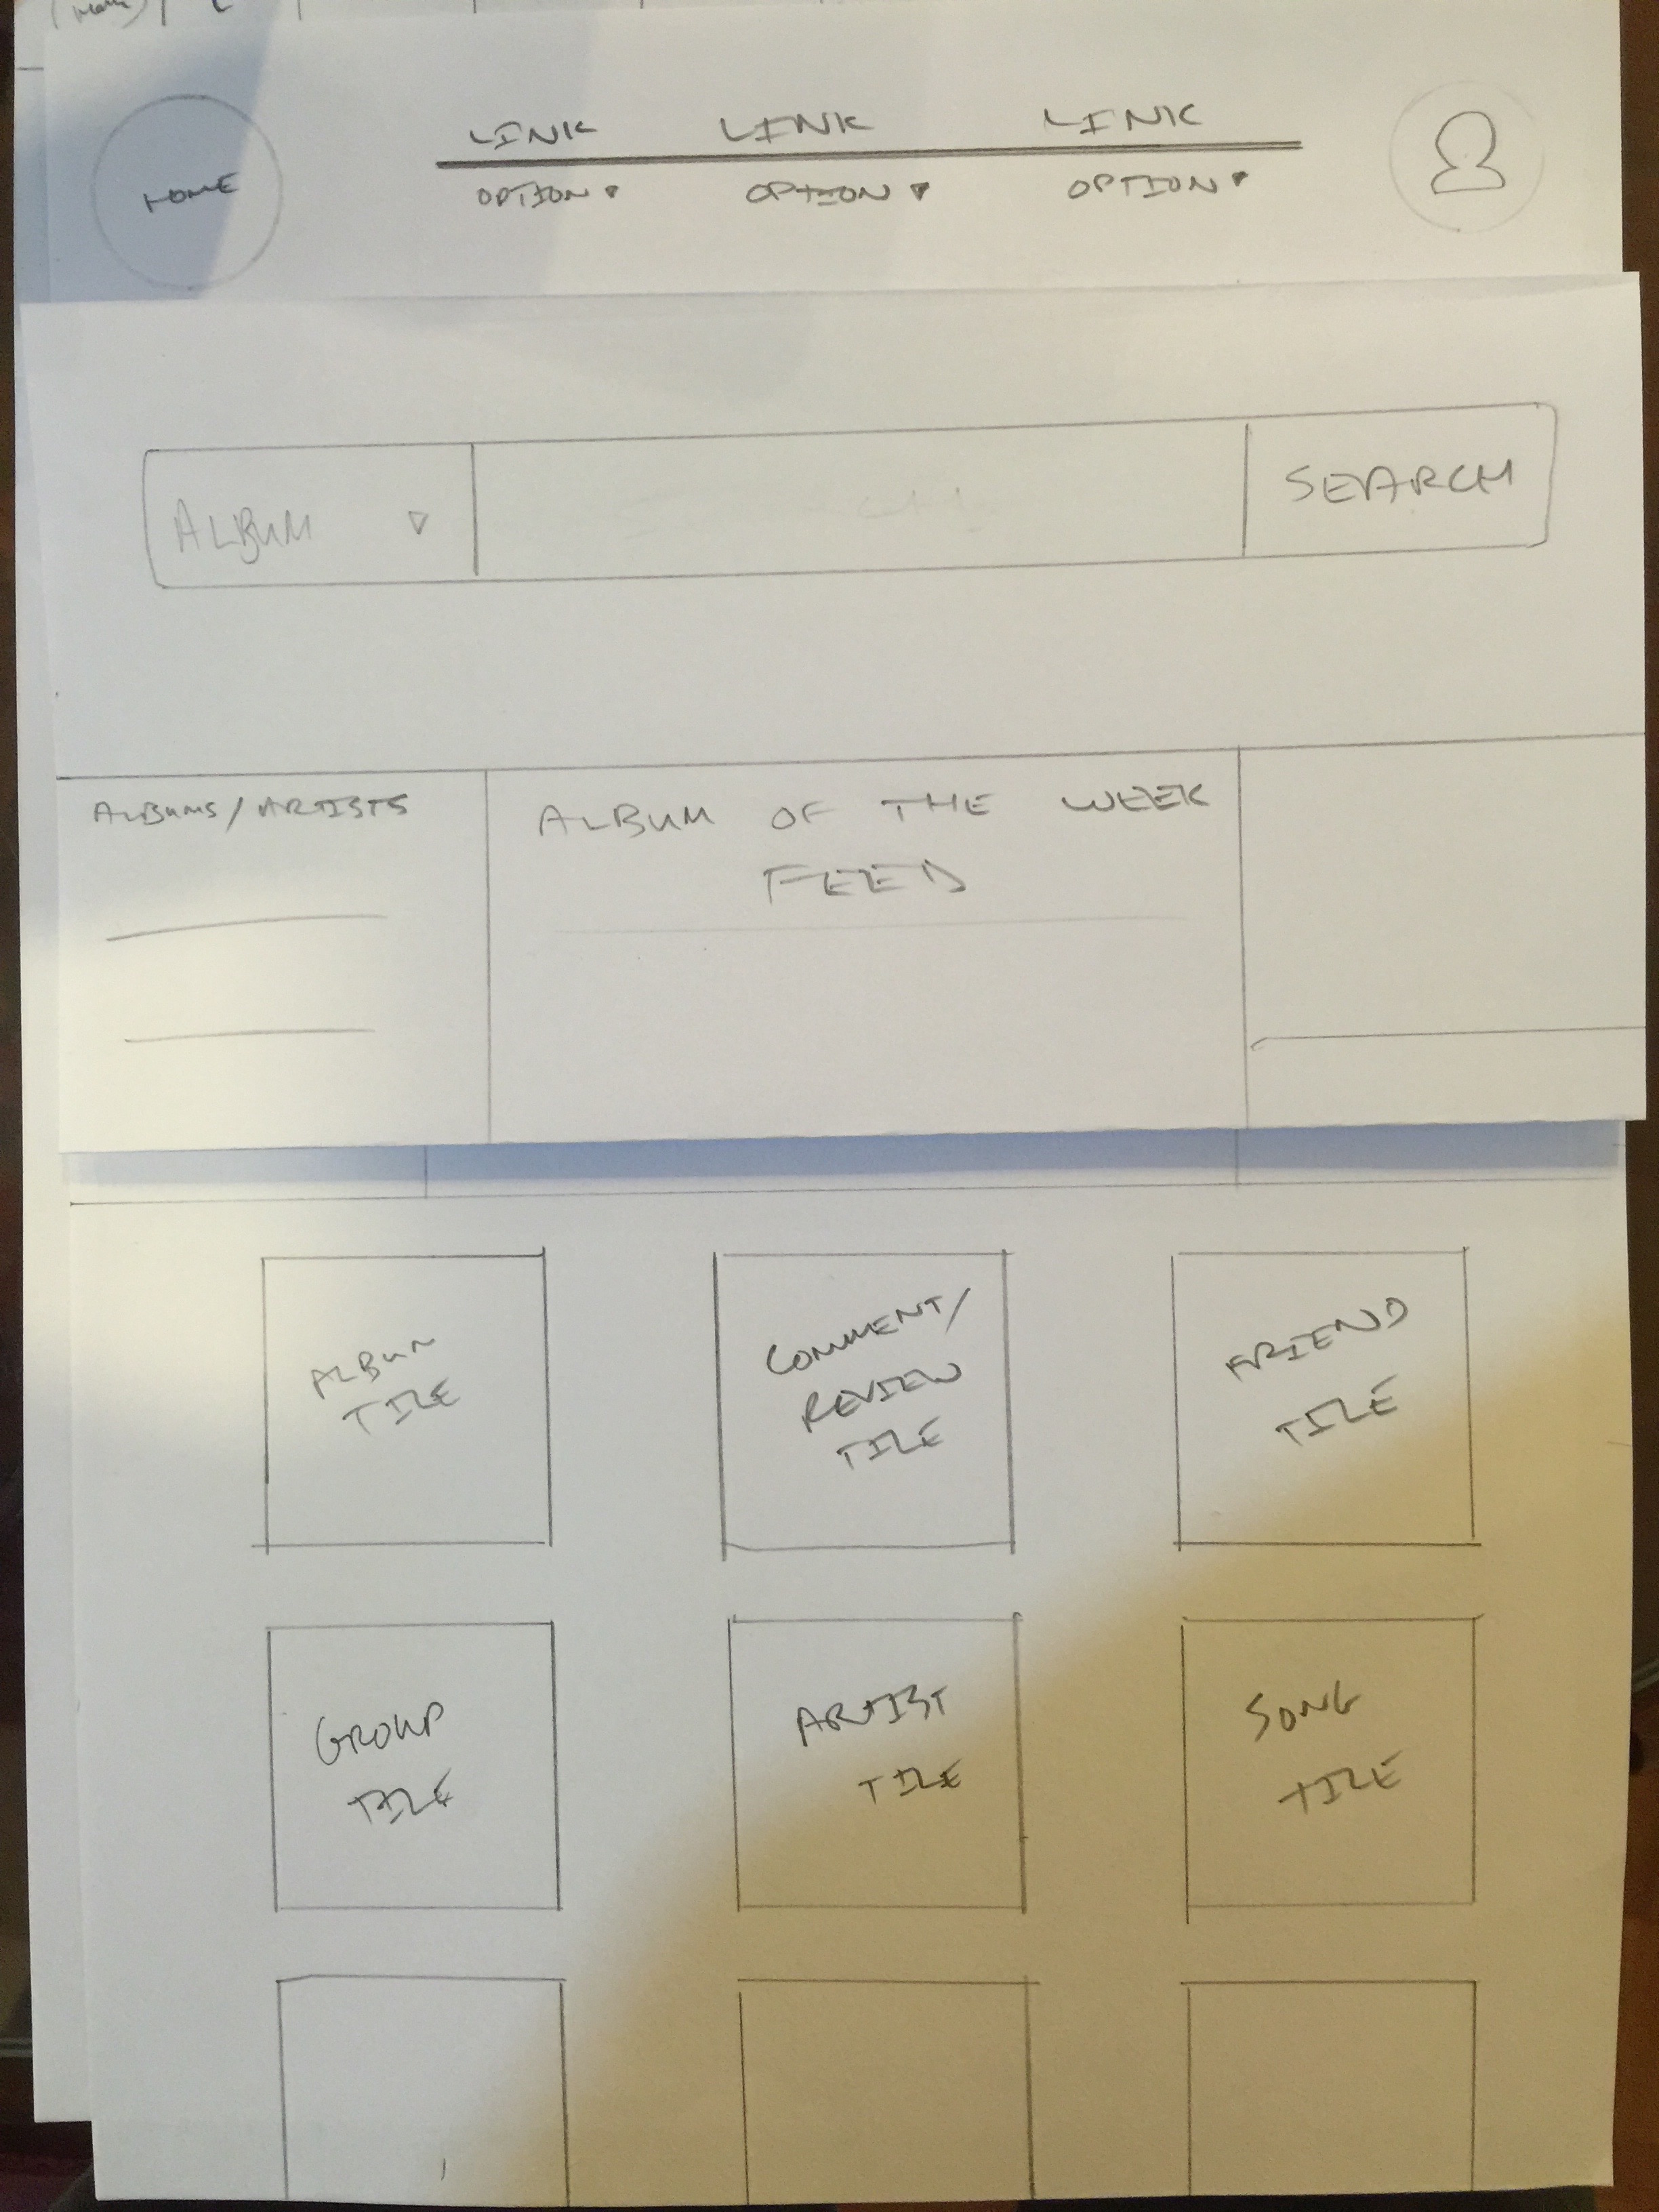 HOME
LINK LINK LINK
OPTION OPTION OPTION
ALBUM SEARCH
ALBUMS/ARTISTS
ALBUM OF THE WEEK
FEED
ALBUM
TILE
COMMENT/
REVIEW
TILE
FRIEND
TILE
GROUP
TILE
ARTIST
TILE
SONG
TILE